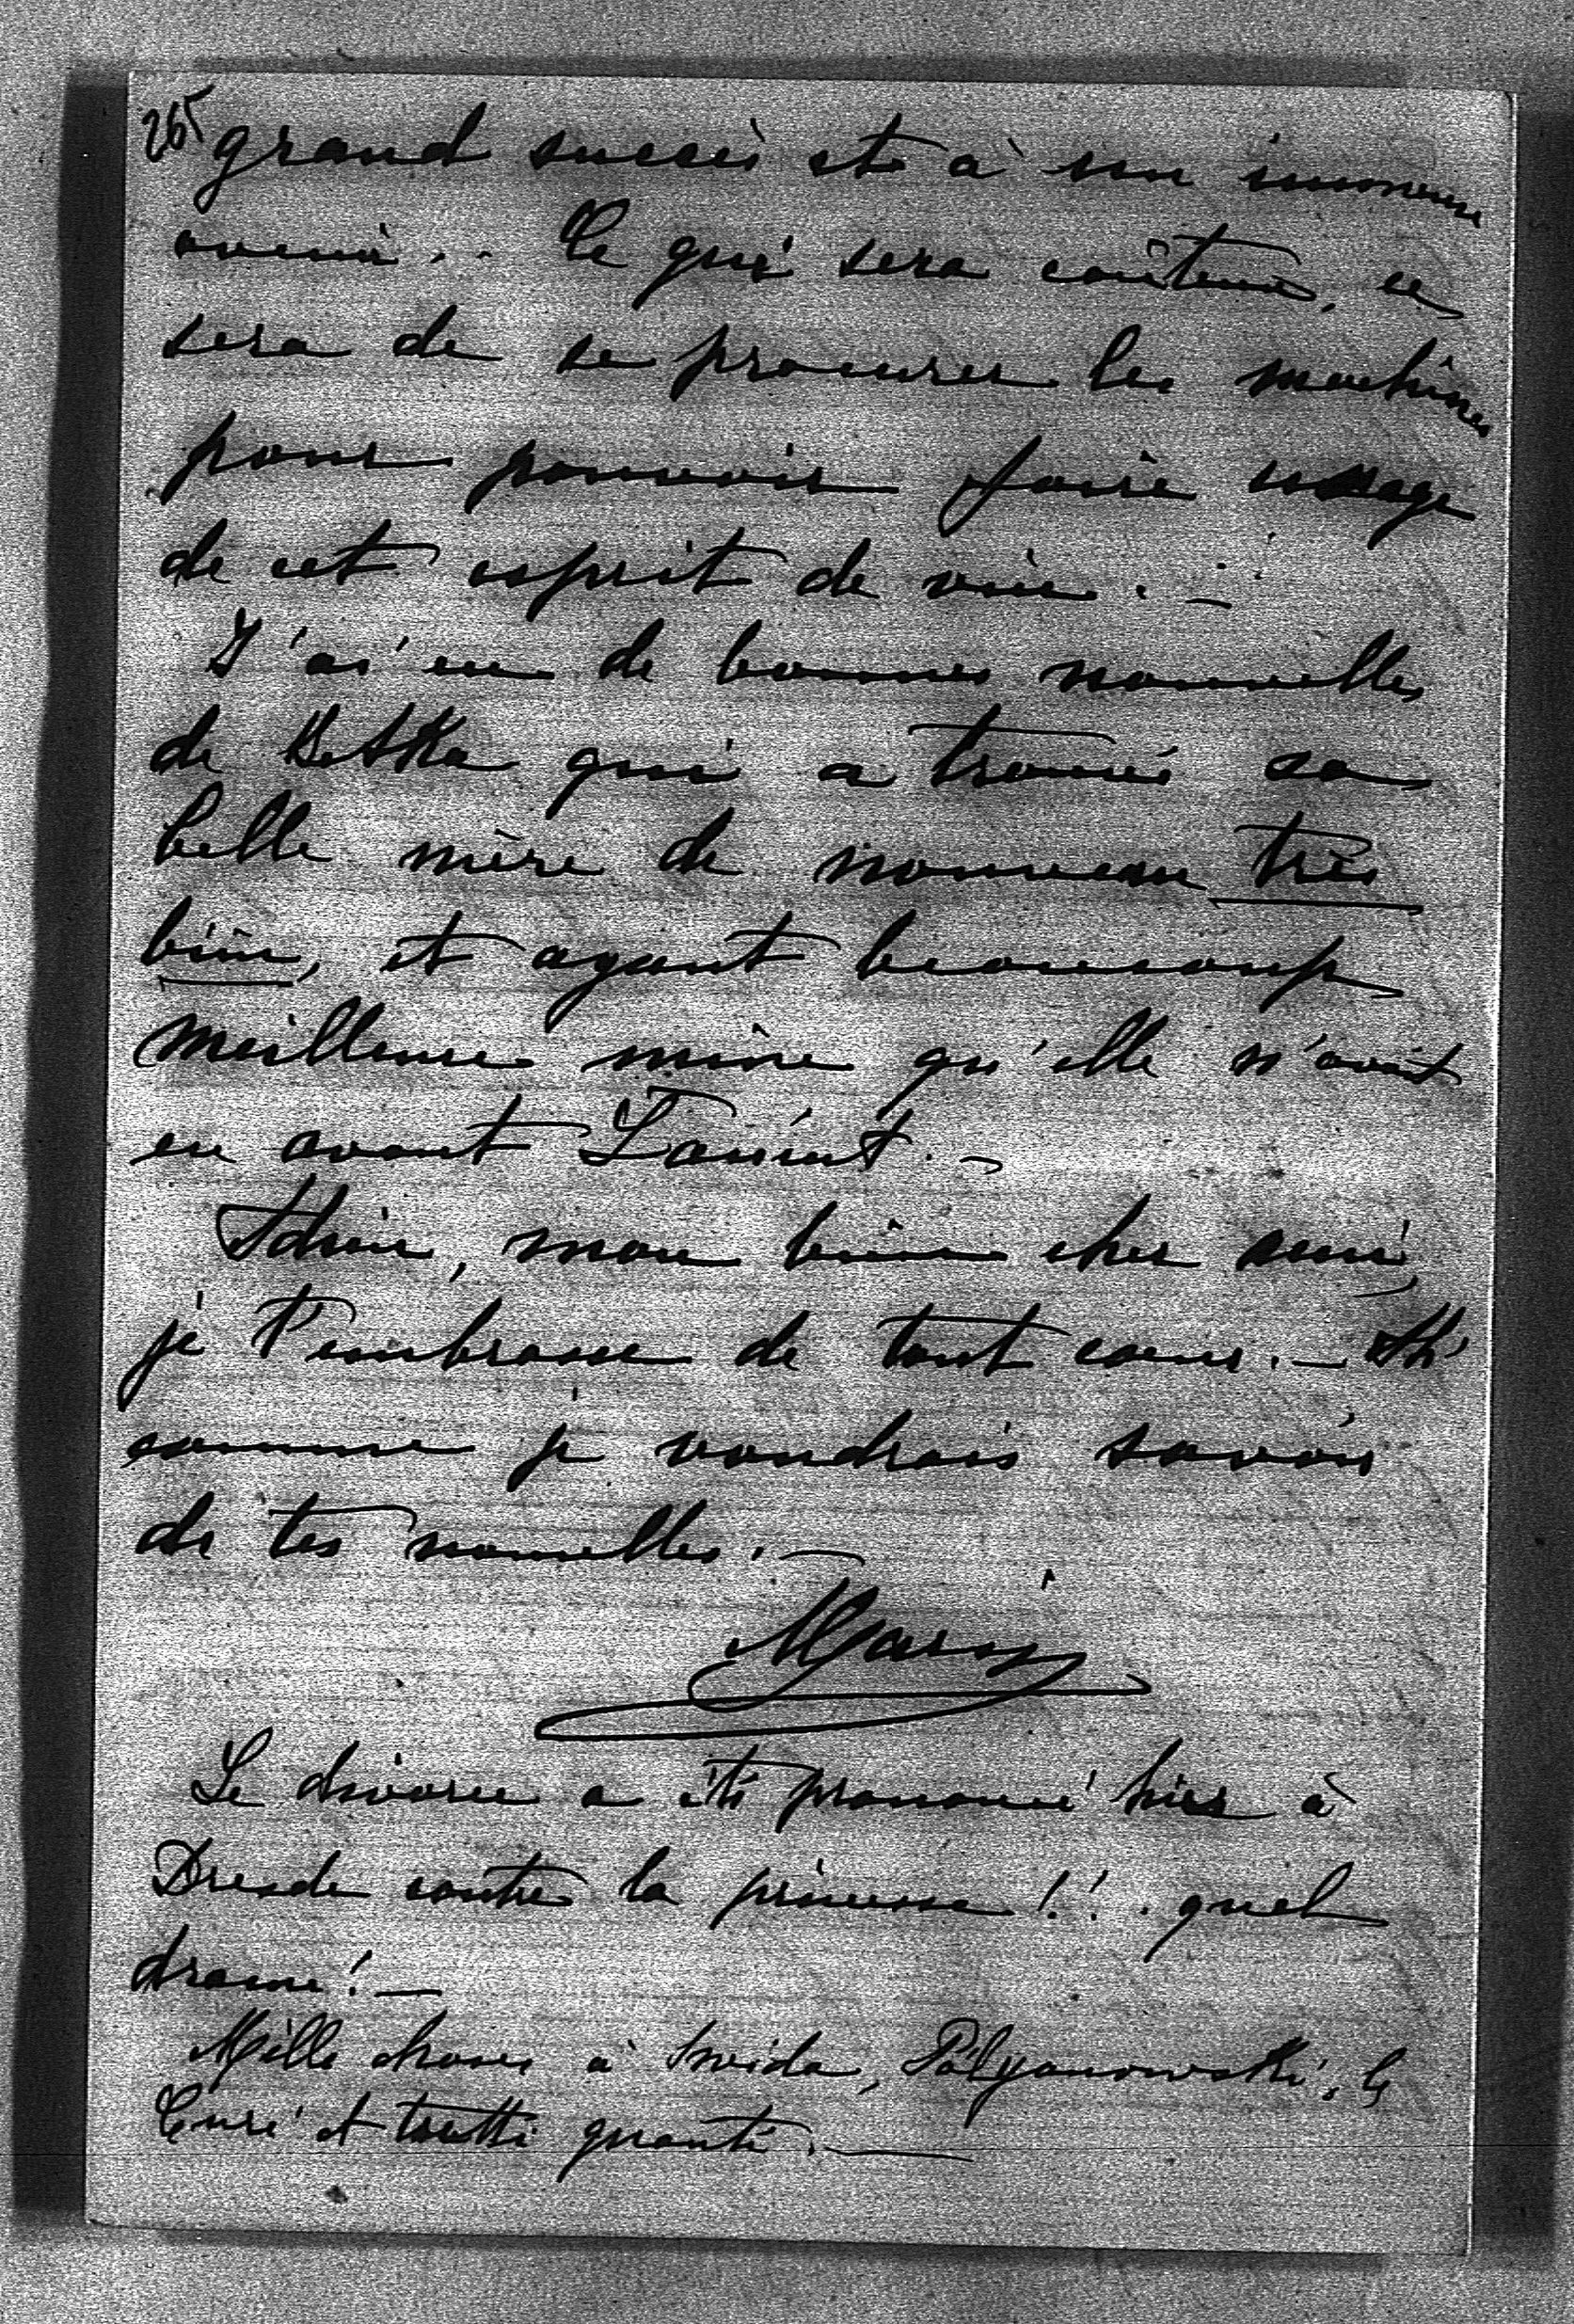 265
grand succès et à un immense
avenir.. Ce qui sera coûteux, ce
sera de se procurer les machines
pour pouvoir faire usage
de cet esprit de vin. –
J'ai eu de bonnes nouvelles
de Betka qui a trouvé sa
belle mère de nouveau très
bien, et ayant beaucoup
meilleure mine qu'elle n'avait
eu avant Łańcut. –
Adieu, mon bien cher ami,
je t'embrasse de tout coeur. – Ah'
comme je voudrais savoir
de tes nouvelles. –
Mary
Le divorce a été prononcé hier à
Dresde contre la princesse!!. quel
drame! –
Mille choses à Swida, le
Curé et tutti quanti. –